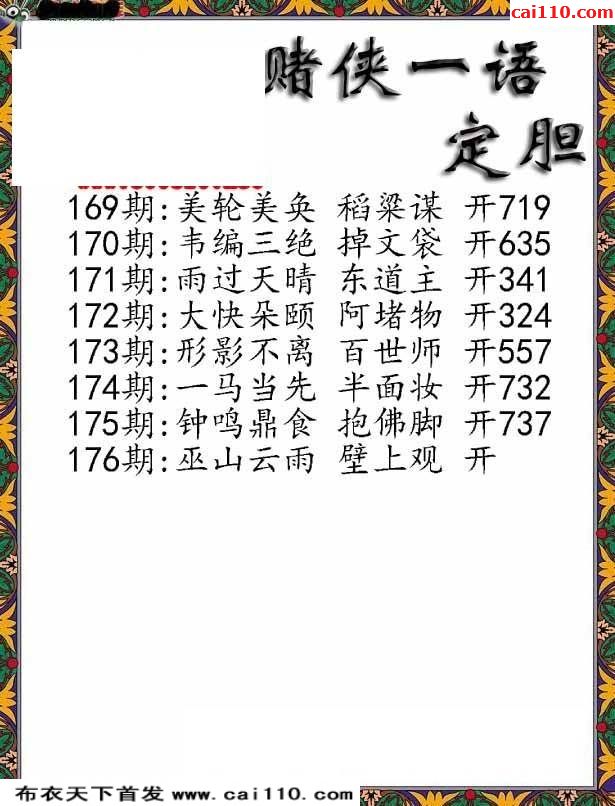 cai110.com
赌侠一语
定胆
169期:美轮美奂 稻粱谋 开719
170期:韦编三绝 掉文袋 开635
171期:雨过天晴 东道主 开341
172期:大快朵颐 阿堵物 开324
173期:形影不离 百世师 开557
174期:一马当先 半面妆 开732
175期:钟鸣鼎食 抱佛脚 开737
176期:巫山云雨 壁上观 开
布衣天下首发 www.cai110.com